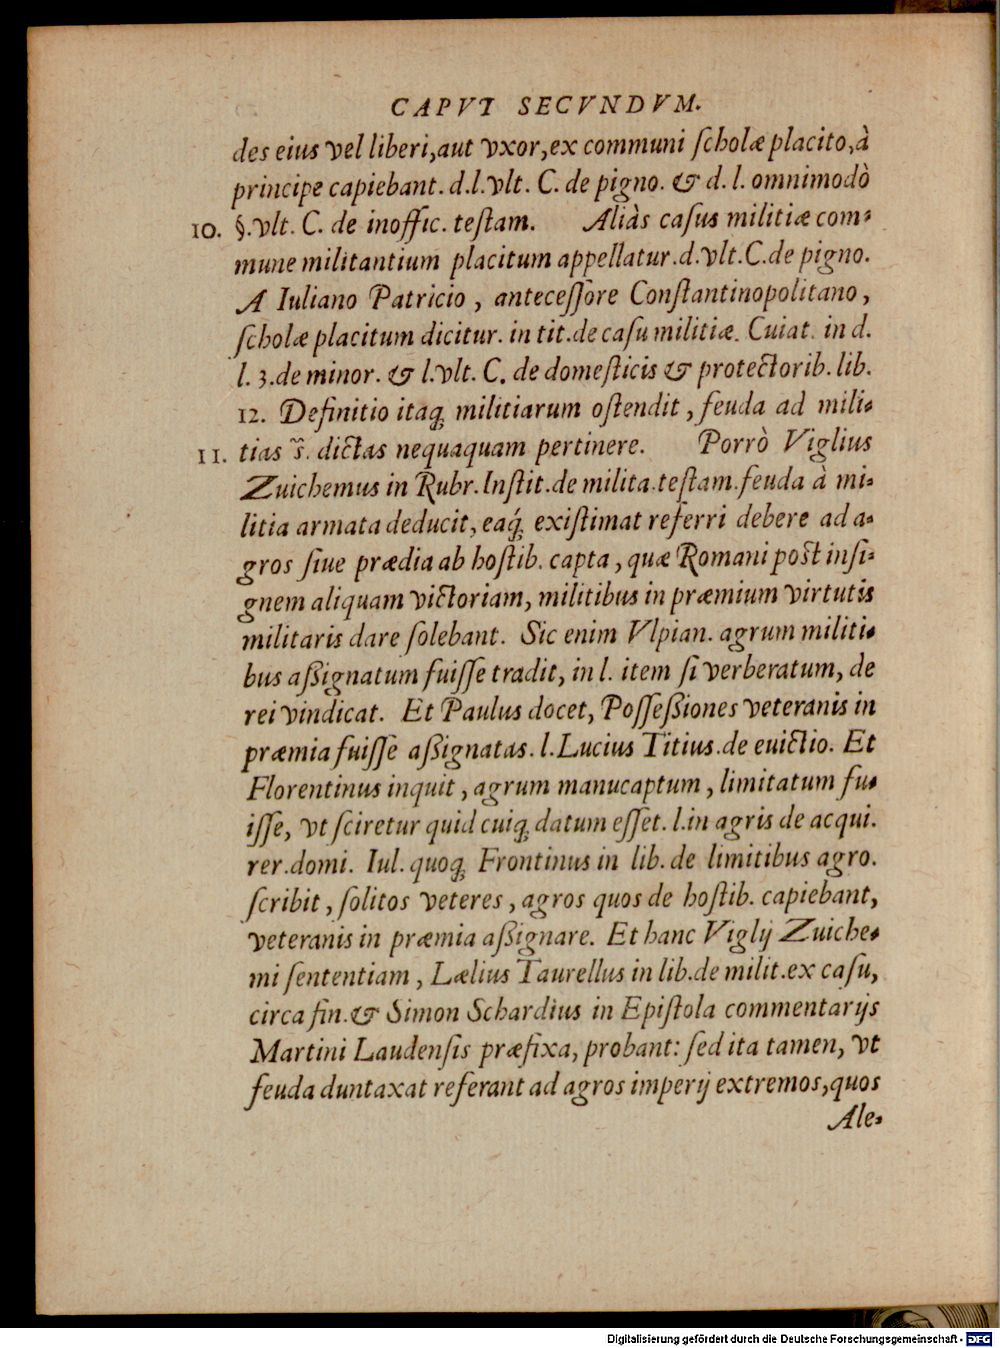 CAPVT SECVNDVM.
des eius vel liberi, aut vxor, ex communi ſcholæ placito, à
principe capiebant. d.l.vlt. C. de pigno. & d. l. omnimodò
10. §.vlt. C. de inoffic. teſtam. Aliàs caſus militiæ com-
mune militantium placitum appellatur. d.vlt.C.de pigno.
A Iuliano Patricio, anteceſſore Conſtantinopolitano,
ſcholæ placitum dicitur. in tit.de caſu militiæ. Cuiat. in d.
l. 3.de minor. & l.vlt. C. de domeſticis & protectorib. lib.
12. Definitio itaq; militiarum oſtendit, feuda ad mili-
11. tias s̃. dictas nequaquam pertinere. Porrò Viglius
Zuichemus in Rubr. Inſtit.de milita.teſtam.feuda à mi-
litia armata deducit, eaq́; exiſtimat referri debere ad a-
gros ſiue prædia ab hoſtib. capta, quæ Romani poſt inſi-
gnem aliquam victoriam, militibus in præmium virtutis
militaris dare ſolebant. Sic enim Vlpian. agrum militi-
bus aßignatum fuiſſe tradit, in l. item ſi verberatum, de
rei vindicat. Et Paulus docet, Poſſeßiones veteranis in
præmia fuiſſe aßignatas. l.Lucius Titius.de euictio. Et
Florentinus inquit, agrum manucaptum, limitatum fu-
iſſe, vt ſciretur quid cuiq; datum eſſet. l.in agris de acqui.
rer.domi. Iul. quoq; Frontinus in lib. de limitibus agro.
ſcribit, ſolitos veteres, agros quos de hoſtib. capiebant,
veteranis in præmia aßignare. Et hanc Viglij Zuiche-
mi ſententiam, Lælius Taurellus in lib.de milit.ex caſu,
circa fin.& Simon Schardius in Epiſtola commentarijs
Martini Laudenſis præfixa, probant: ſed ita tamen, vt
feuda duntaxat referant ad agros imperij extremos, quos
Ale-
Digitalisierung gefördert durch die Deutsche Forschungsgemeinschaft - DFG